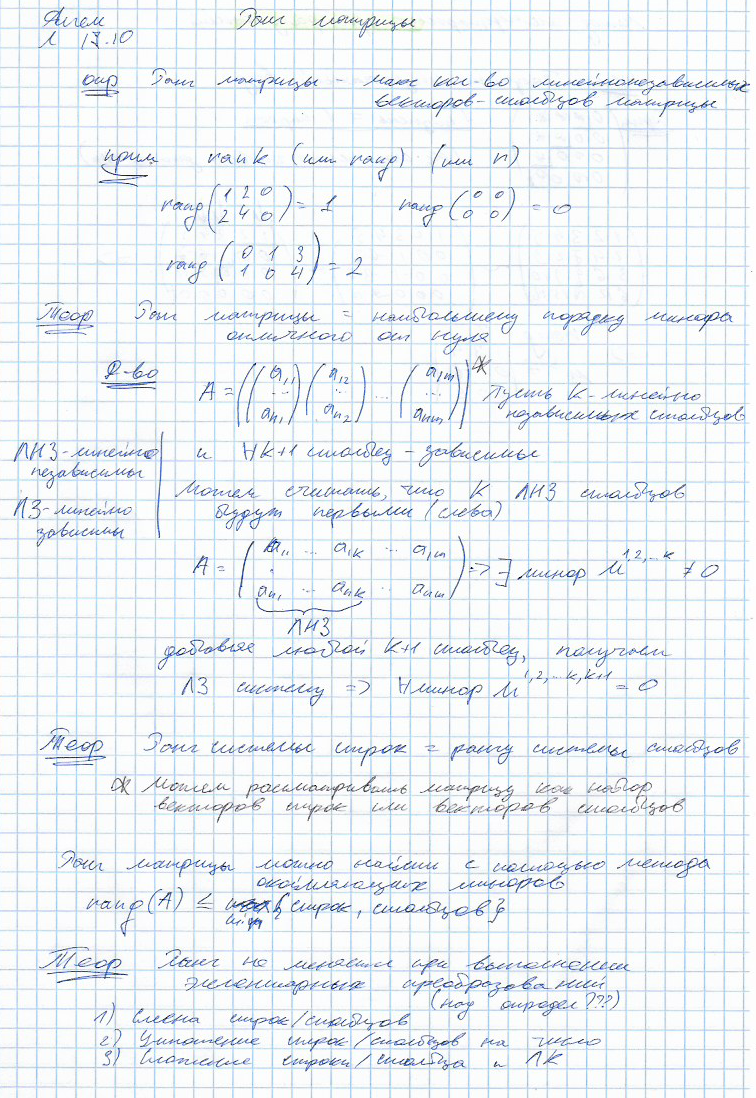 Ангем Ранг матрицы
Л 17.10
опр Ранг матрицы - макс кол-во линейнонезависимых
векторов-столбцов матрицы
прим rank (или rang) (или r)
rang (1 2 0 / 2 4 0) = 1 rang (0 0 / 0 0) = 0
rang (0 1 3 / 1 0 4) = 2
Теор Ранг матрицы = наибольшему порядку минора
отличного от нуля
Д-во A = ((a11 ... an1) (a12 ... an2) ... (a1m ... anm))* Пусть K-линейно
независимых столбцов
ЛНЗ-линейно
независимы
ЛЗ-линейно
зависимы
и ∀K+1 столбец - зависимы
Можем считать, что K ЛНЗ столбцов
будут первыми (слева)
A = (a11 ... a1k ... a1m / an1 ... ank ... anm) => ∃ минор M^1,2,...k ≠ 0
ЛНЗ
добавляя любой K+1 столбец, получаем
ЛЗ систему => ∀минор M^1,2,...k,k+1 = 0
Теор Ранг системы строк = рангу системы столбцов
* Можем рассматривать матрицу как набор
векторов строк или векторов столбцов
Ранг матрицы можно найти с помощью метода
окаймляющих миноров
rang(A) ≤ min{строк, столбцов}
Теор Ранг не меняется при выполнении
элементарных преобразований
(под определ???)
1) Смена строк/столбцов
2) Умножение строк/столбцов на число
3) Сложение строки/столбца и ЛК